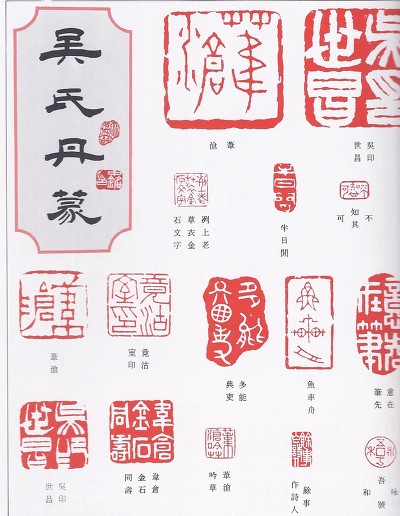 吴氏丹篆
吳印
世昌
葦
滄
不
知其
可
半日閒
洌上老
草衣金
石文字
意在
筆先
魚車舟
多能
典吏
竟沽
室印
葦滄
味
吾號
和
餘事
作詩人
葦滄
吟草
葦倉
金石
同壽
吳印
世昌